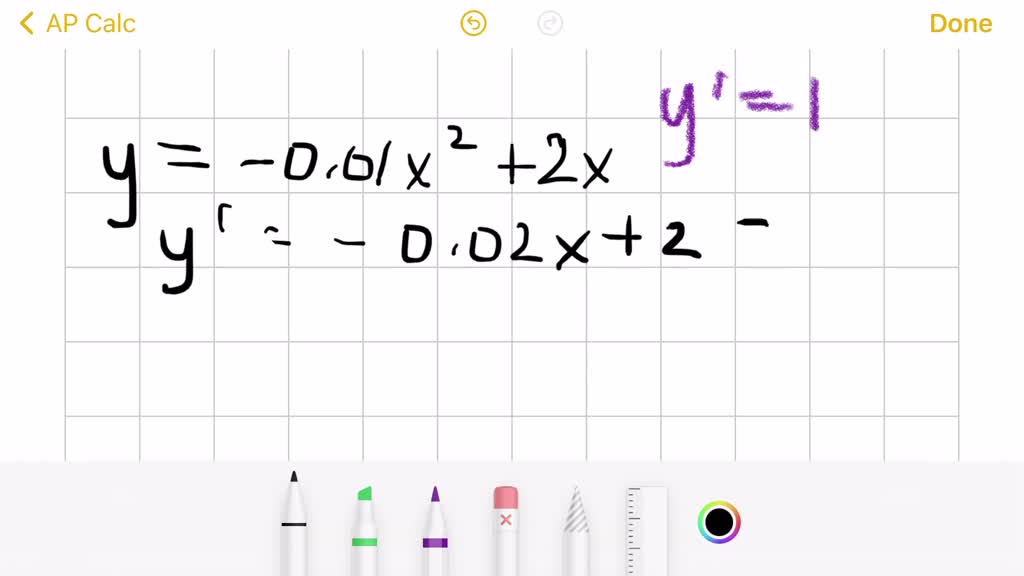 AP Calc
Done
y' = 1
y = -0.01x² + 2x
y' = -0.02x + 2 -